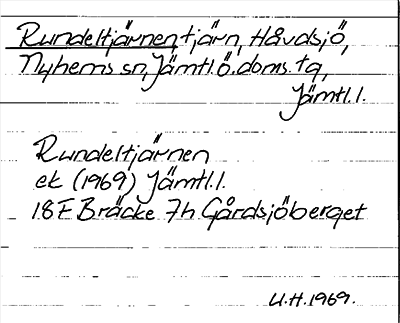 Rundeltjärnen, tjärn, Håvdsjö,
Nyhems sn, Jämtl. Ö. doms. tg,
Jämtl. l.
Rundeltjärnen
ek (1969) Jämtl. l.
18F Bräcke 7h Gårdsjöberget
U.H. 1969.